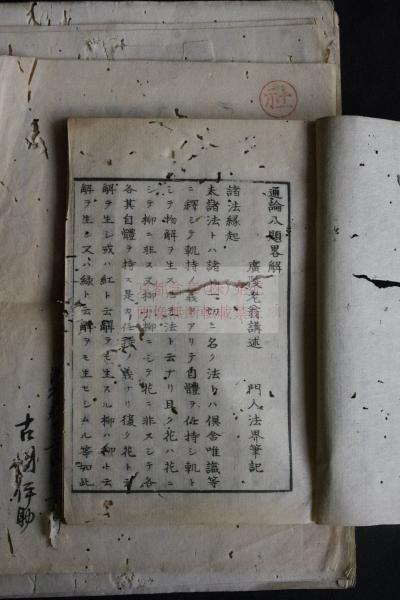 通論八題畧解
廣陵老翁講述　門人法界筆記
諸法縁起
夫諸法トハ諸ハ一切ニ名ク法トハ倶舎唯識等
ニ釋シテ軌持ノ義トアリテ自體ヲ任持シ軌ト
シテ物解ヲ生スルヲ法ト云ナリ且ク花ハ花ニ
シテ柳ニ非ス又柳ハ柳ニシテ花ニ非スシテ各
各其自體ヲ持ス是レ任持ノ義ナリ復ク花ト云
解ヲ生シ或ハ紅ト云解ヲモ生スル柳ハ柳ト云
解ヲ生シ又ハ緑ト云解ヲモ生セシムル等如此